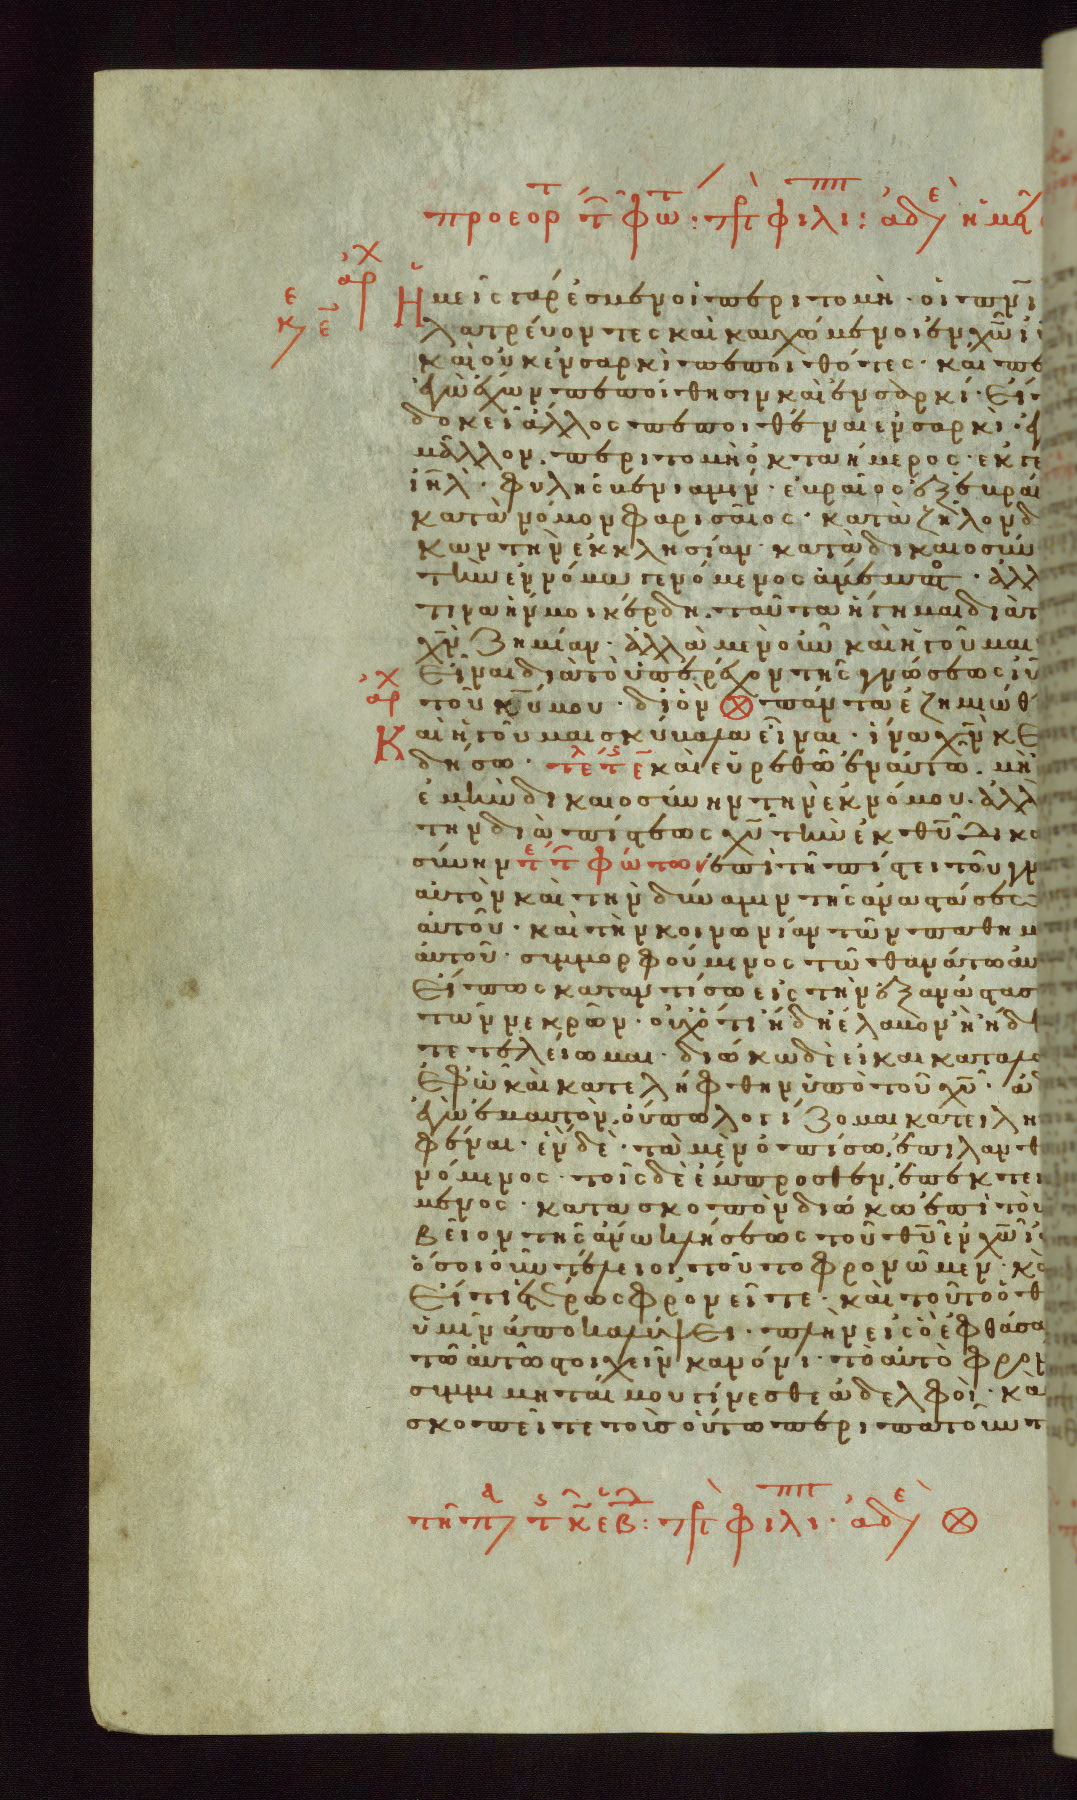 προεορτ τ̑ φωτ: πρ φιλιππ: ἀδε ἡμ
ἀρχ
κε ε̄
Ἡμεῖς γάρ ἐσμεν οἱ περιτομὴ · οἱ πν̅ι
λατρέυοντες καὶ καυχώμενοι ἐν χω̅ ι
καὶ οὐκ ἐν σαρκὶ πεποιθότες · και
ἐγὼ ἔχων πεποίθησιν καὶ ἐν σαρκί · Εἴ
δοκεῖ ἄλλος πεποιθέναι ἐν σαρκὶ · ἐ
μᾶλλον. περιτομὴ ὀκταήμερος · ἐκ γε
ιη̅λ · φυλῆς βενιαμὶν · εβραῖος ἐξ εβραί
κατὰ νόμον φαρισαῖος · κατὰ ζῆλον δ
κων τὴν ἐκκλησίαν · κατὰ δικαιοσύν
τὴν ἐν νόμω γενόμενος ἄμεμπτο · ἀλλ
τινα ἦν μοι κέρδη. ταῦτα ἥγημαι διὰ τ
χν̅ ζημίαν · ἀλλὰ μενοῦν καὶ ἡγοῦμαι
Εἶναι διὰ τὸ ὑπερέχον τῆς γνώσεως ιυ̅
ἀρχ
τοῦ κυ̅ μου · δι ὃν ⊗ πάντα ἐζημιώθ
Καὶ ἡγοῦμαι σκύβαλα εἶναι · ἵνα χν̅ κε
δήσω · τελ τ ε̄ καὶ εὑρεθῶ ἐν αὐτῶ. μὴ
ἐμὴν δικαιοσύνην τὴν ἐκ νόμου. ἀλλὰ
τὴν διὰ πίστεως χυ̅ τὴν ἐκ θυ̅ δικα
σύνην τε τ̑ φώτων ἐπὶ τῆ πίστει τοῦ γν
αὐτὸν καὶ τὴν δύναμιν τῆς ἀναστάσε
αὐτοῦ · καὶ τὴν κοινωνίαν τῶν παθημ
ἀυτοῦ · συμμορφούμενος τῶ θανάτω ἀυ
Εἴ πως καταντήσω εἰς τὴν ἐξανάστασ
τῶν νεκρῶν · οὐχ ὅτι ἤδη ἔλαβον ἢ ἤδ
τετελείωμαι · διώκω δὲ εἰ και καταλ
Ἐφ ὧ καὶ κατελήφθην ὑπὸ τοῦ χυ̅ · ἀ
ἐγὼ ἐμαυτὸν. οὔπω λογίζομαι κατειλη
φέναι · ἓν δὲ · τὰ μὲν ὀπίσω. ἐπιλανθ
νόμενος · τοῖς δὲ ἔμπροσθεν. ἐπεκτει
μενος · κατα σκοπὸν διώκω ἐπὶ τὸ
βεῖον τῆς ἄνω κλήσεως τοῦ θυ̅ ἐν χω̅ ι
ὅσοι οὖν τέλειοι τοῦτο φρονῶμεν · κὰ
Εἴ τι ἑτέρως φρονεῖτε · καὶ τοῦτο ὁ θ
ὑμῖν ἀποκαλύψει · πλὴν εἰς ὃ ἐφθάσα
τῶ ἀυτῶ στοιχεῖν κανόνι · τὸ αὐτὸ φρον
συμμιμηταί μου γίνεσθε ἀδελφοὶ · κὰ
σκοπεῖτε τοὺς οὕτω περιπατοῦντ
τῆ πα τ κε εβ: πρ φιλιππ · ἀδε ⊗